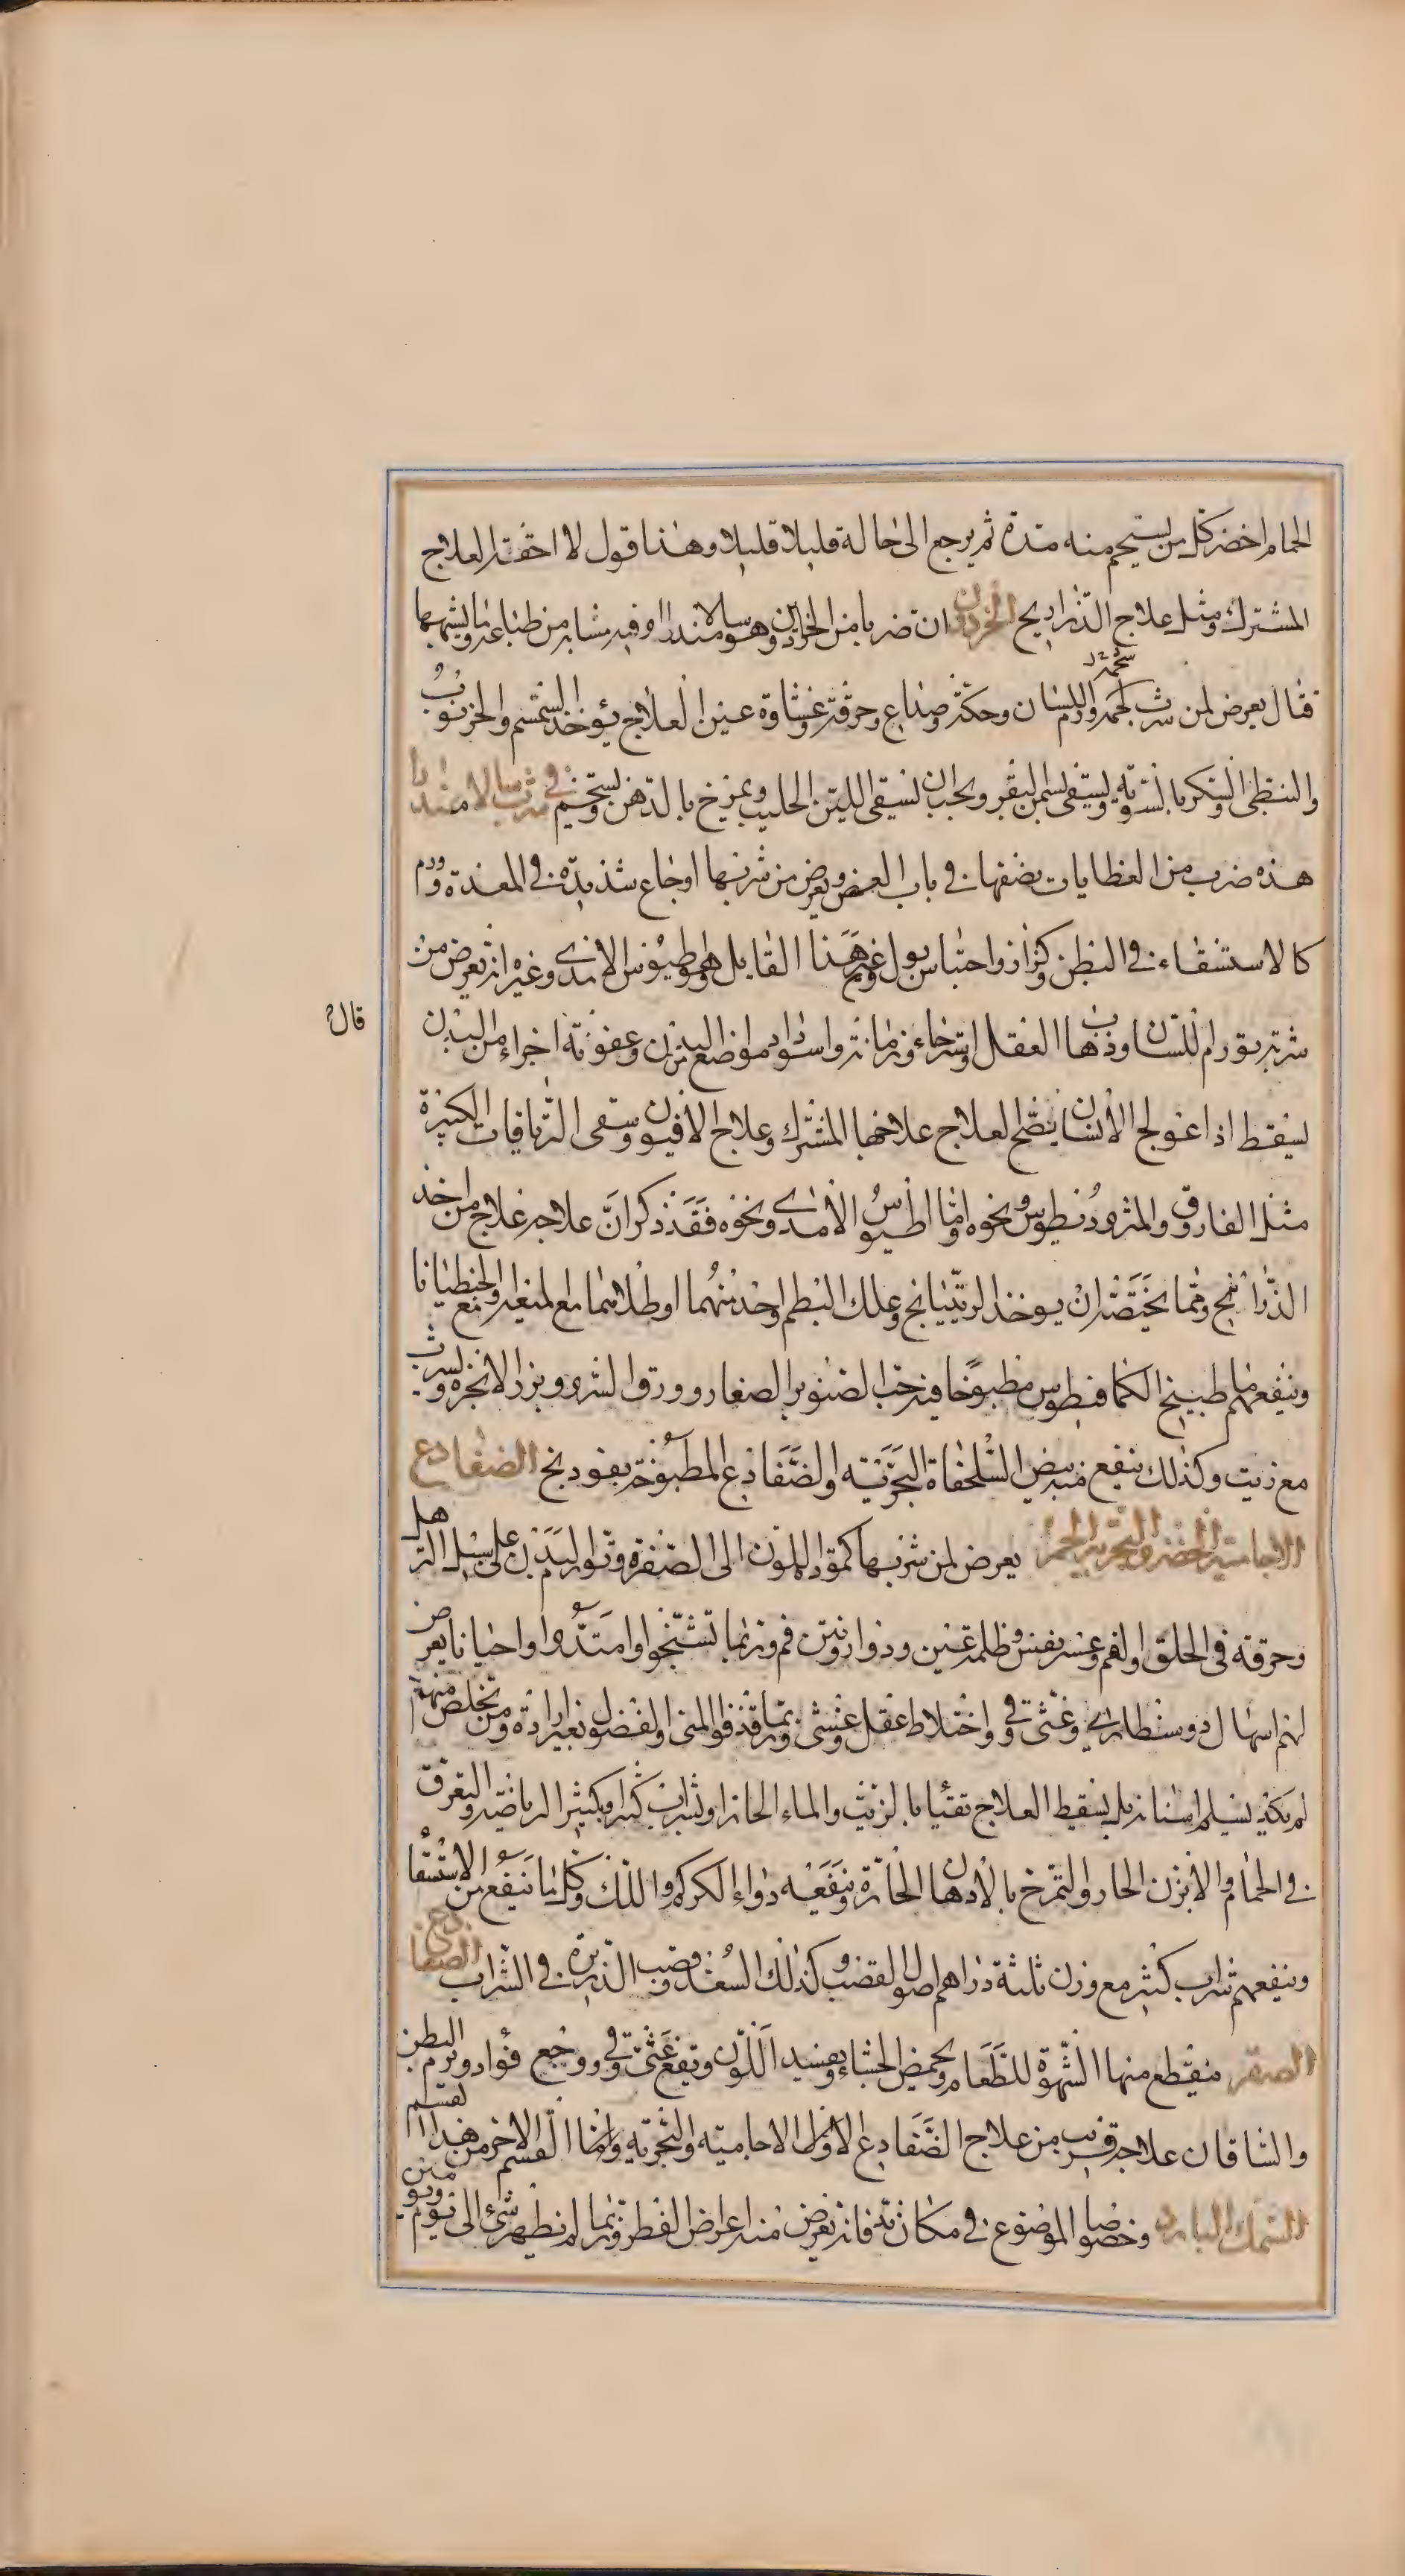 الحمام اخضر كل من يستحم منه مدة ثم يرجع الى حاله قليلا قليلا وهذا قول لا احقه العلاج
المشترك ومثل علاج الذراريح الحرذون ان ضربا من الحراذين وهو سالامندرا وفيه مشابه من طباعه وما يشبهها
فقال يعرض لمن شرب ورم اللسان وحكة وصداع وحرقة وغشاوة عين العلاج يؤخذ السمسم والخرنوب
والنبطى والسكر بالسوية ويسقى بسمن البقر ويجب ان يسقى اللبن الحليب ويمرخ بالدهن ويستحم فى شرب سالامندرا
هذه ضرب من العظايات نصفها فى باب العض ويعرض من شربها اوجاع شديدة فى المعدة وورم
كالاستسقاء فى البطن وكزاز واحتباس بول وغير هذا القايل وهو اطيوس الامدى وغيره انه يعرض من
قال
شربه تورم اللسان وذهاب العقل واسترخاء وزمانة واسوداد مواضع البدن وعفونة اجزاء من البدن
يسقط اذا عولج الانسان العلاج علاجها المشترك وعلاج الافيون وسقى الترياقات الكبيرة
مثل الفاروق والمثروديطوس ونحوه واما اطيوس الامدى ونحوه فقد ذكر ان علاجه علاج من اخذ
الذراريح ومما يختص ان يوخذ الريتيانج وعلك البطم احد منهما او كلاهما مع الميعة والجنطيانا
وينفعهم طبيخ الكمافيطوس مطبوخا فيه حب الصنوبر الصغار وورق السرو وبزر الانجرة ويشرب
مع زيت وكذلك ينفع منه بيض السلحفاة البحرية والضفادع المطبوخة بفودنج الضفادع
الاجامية الخضر والبحرية الحمر يعرض لمن شربها كمودة اللون الى الصفرة وتورم البدن على سبيل الترهل
وحرقة فى الحلق والفم وعسر نفس وظلمة عين ودوار ونتن فم وربما تشنجوا وامتدوا واحيانا يعرض
لهم اسهال دوسنطارى وغثى وقى واختلاط عقل وغشى وربما قذفوا المنى والفضول بغير ارادة ومن تخلص منهم
لم يكد يسلم اسنانه بل يسقط العلاج تقيأ بالزيت والماء الحار او بشراب كثير ويكثر الرياضة والتعرق
فى الحمام والابزن الحار والتمرخ بالادهان الحارة وينفعه دواء الكركم واللك وكل ما ينفع من الاستسقا
وينفعهم شراب كثير مع وزن ثلثة دراهم اصول القصب وكذلك السعد وقصب الذريرة فى الشراب الضفادع
الصفر ينقطع منها الشهوة للطعام ويحمض الجشاء ويفسد اللون ويقع غثى وقى ووجع فؤاد وورم البطن
والساقان علاجه قريب من علاج الضفادع الاول الاجامية والبحرية واما القسم الاخر من هذا القسم
السمك البارد وخصوصا الموضوع فى مكان ندى فانه يعرض منه اعراض الفطر وربما لم يظهر شئ الى يوم ويومين